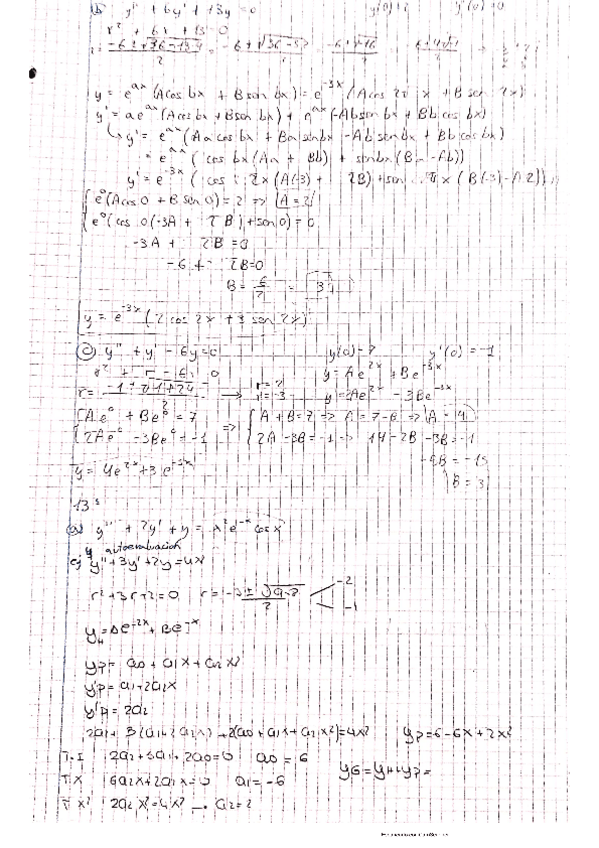 b) y'' + 6y' + 13y = 0 y'(0) = 0
r² + 6r + 13 = 0
y = e^{ax} (A cos bx + B sen bx) = e^{-3x} (A cos 2x + B sen 2x)
y' = a e^{ax} (A cos bx + B sen bx) + e^{ax} (-A b sen bx + B b cos bx)
↳ y' = e^{ax} (A a cos bx + B a sen bx - A b sen bx + B b cos bx)
= e^{ax} ( cos bx (Aa + Bb) + sen bx (Ba - Ab))
y' = e^{-3x} ( cos 2x (A(-3) + 2B) + sen 2x (B(-3) - A2))
e⁰ (A cos 0 + B sen 0) = 2 => A = 2
e⁰ (cos 0 (-3A + 2B) + sen 0) = 0
-3A + 2B = 0
-6 + 2B = 0
B = 6/2 = 3
y = e^{-3x} (2 cos 2x + 3 sen 2x)
c) y'' + y' - 6y = 0 y(0) = 7 y'(0) = -1
r² + r - 6 = 0 y = Ae^{2x} + Be^{-3x}
r = (-1 ± √1+24)/2 → r = 2 r = -3 y' = 2Ae^{2x} - 3Be^{-3x}
Ae⁰ + Be⁰ = 7 => A + B = 7 => A = 7 - B => A = 4
2Ae⁰ - 3Be⁰ = -1 2A - 3B = -1 => 14 - 2B - 3B = -1
-5B = -15
y = 4e^{2x} + 3e^{-3x}
B = 3
13
a) y'' + 2y' + y = x²e^{-x} cos x
y autoevaluacion
c) y'' + 3y' + 2y = 4x²
r² + 3r + 2 = 0 r = (-3 ± √9-8)/2 -2 -1
y_H = Ae^{-2x} + Be^{-x}
yp = a0 + a1x + a2x²
y'p = a1 + 2a2x
y''p = 2a2
2a2 + 3(a1 + 2a2x) + 2(a0 + a1x + a2x²) = 4x² yp = 6 - 6x + 2x²
T.I 2a2 + 3a1 + 2a0 = 0 a0 = 6
T.X 6a2x + 2a1x = 0 a1 = -6 yG = yH + yp =
T X² 2a2 x² = 4x² → a2 = 2